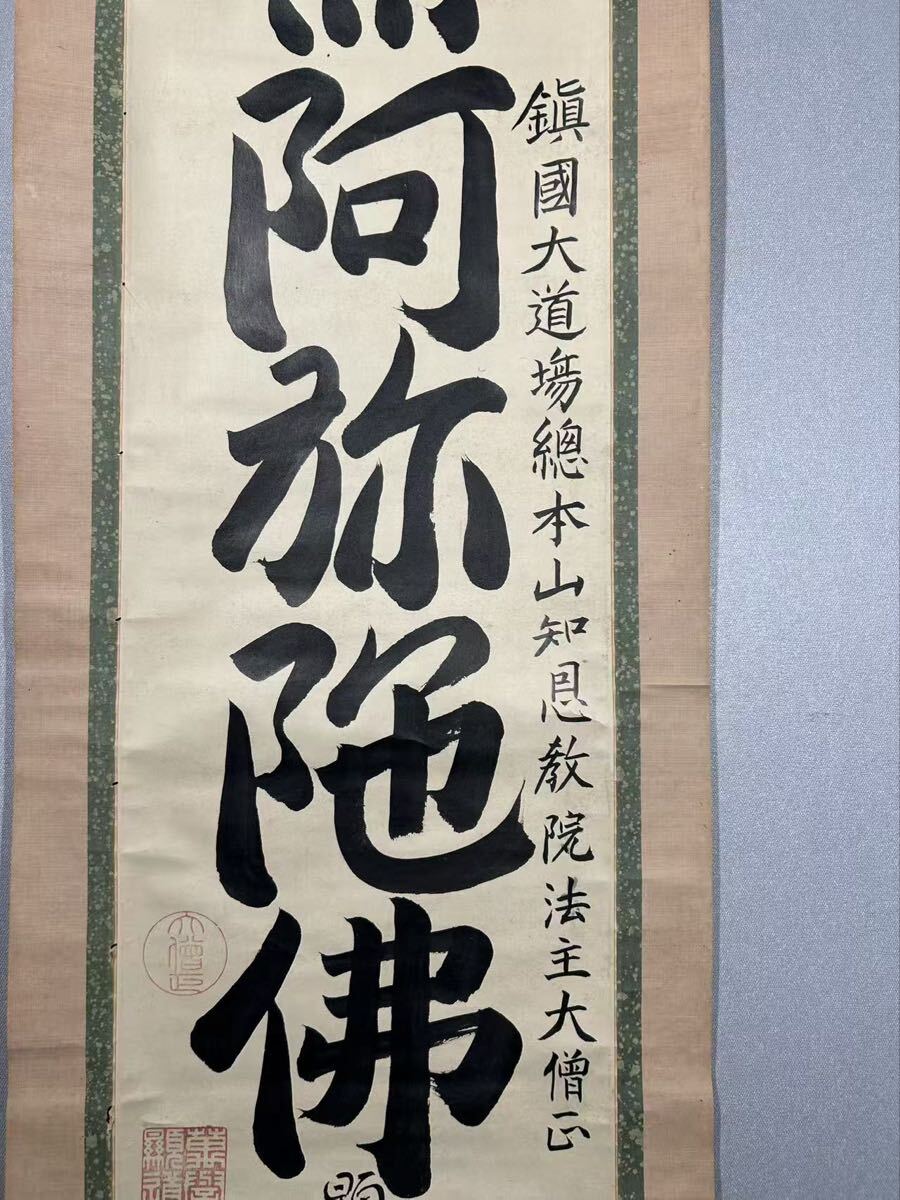 鎮國大道場總本山知恩教院法主大僧正
無阿弥陀佛
大僧正